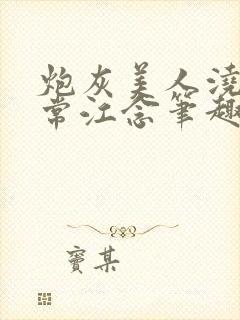 炮灰美人浇
常江念笔趣
窦某